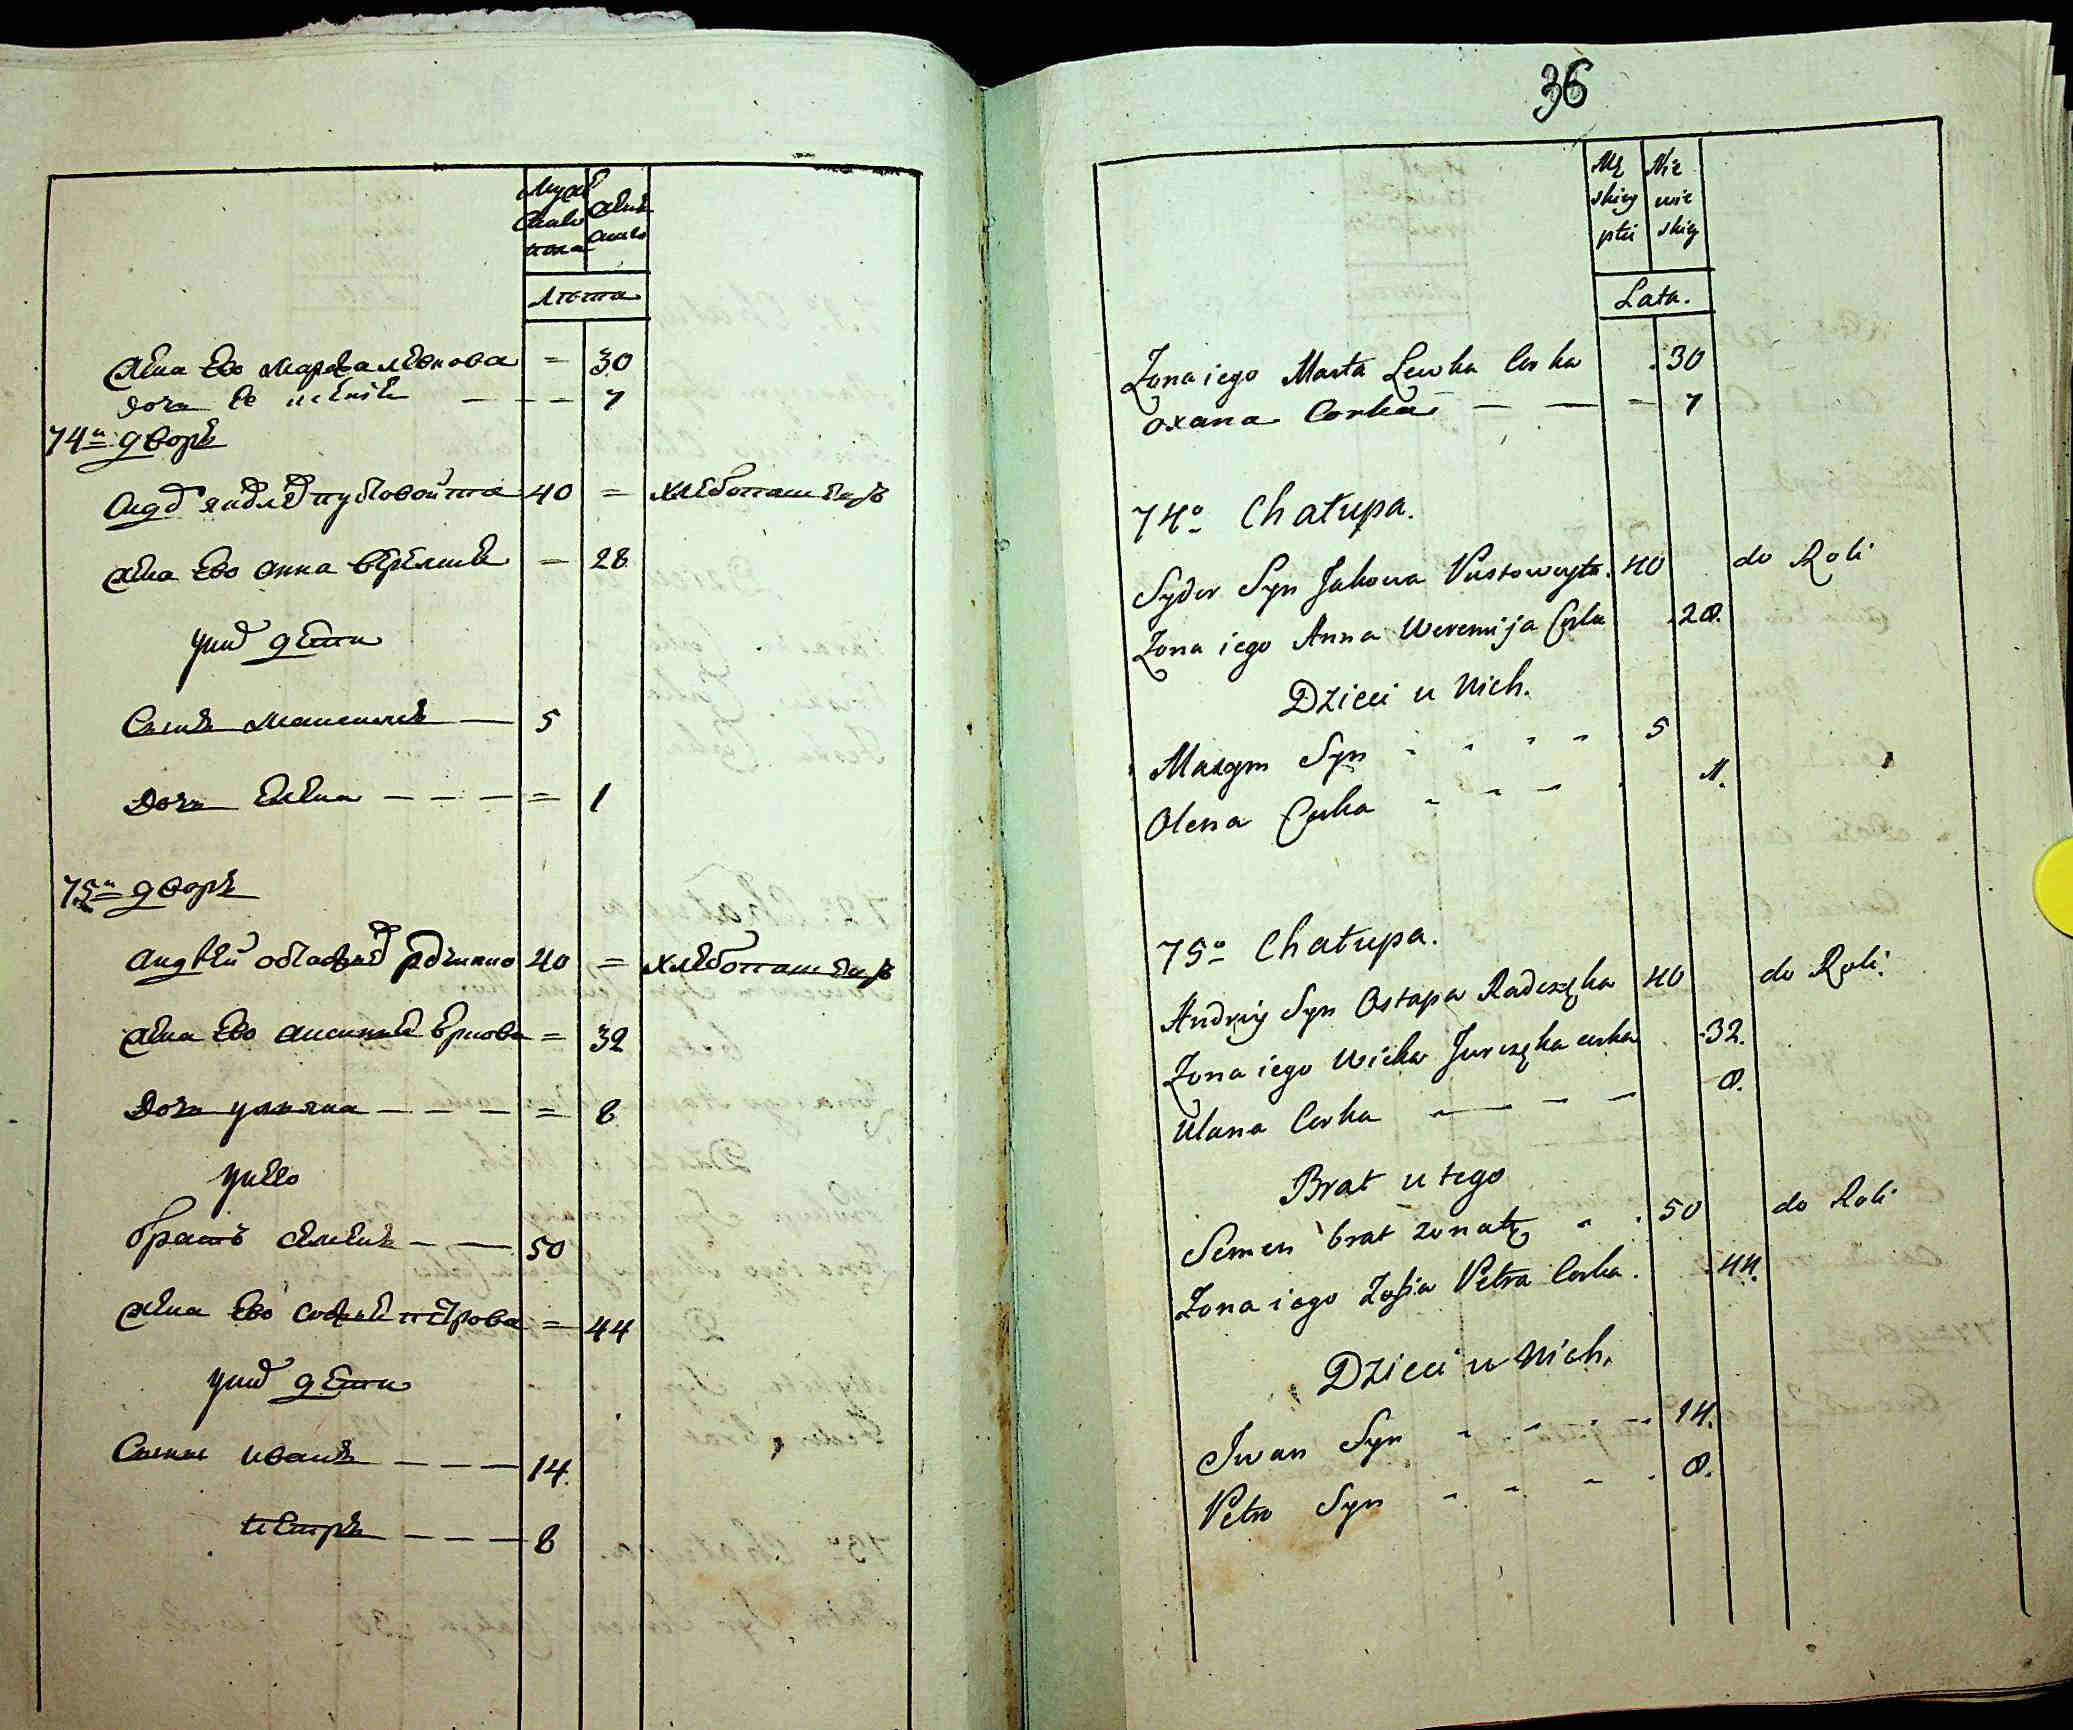 Муж
скаго
пола
Женс
каго
Лѣта
Жена ево Марфа Левкова = 30
дочь - - - 7
74й дворъ
40 = хлебопашецъ
Жена ево Анна = 28
у них дети
Сынъ Максимъ — 5
Дочь Елена - - - = 1
75й дворъ
Андрей 40 = хлебопашецъ
Жена ево = 32
Дочь Ульяна - - - = 8
у нево
братъ Семенъ - — 50
Жена ево Софья Петрова = 44
у них дети
Сыны Иванъ - - - 14
Петръ - - - 8
36
Mę
skiey
płci
Nie
wie
skiey
Lata.
Zona iego Marta Lewka Corka . 30
Oxana Corka — — - 7
74o Chałupa.
Sydor Syn Jakowa Pustowoyta. 40 do Roli
Zona iego Anna Weremija Corka .28.
Dzieci u Nich.
Maxym Syn 5
Olena Corka 1.
75o Chałupa.
Andriy Syn Ostapa Radczęka 40 do Roli.
Zona iego Wicka Jurczęka corka .32.
Ulana Corka — - - 8.
Brat u tego
Semen brat zonatę 50 do Roli
Zona iego Zofia Petra Corka. .44.
Dzieci u Nich.
Iwan Syn 14.
Petro Syn 8.